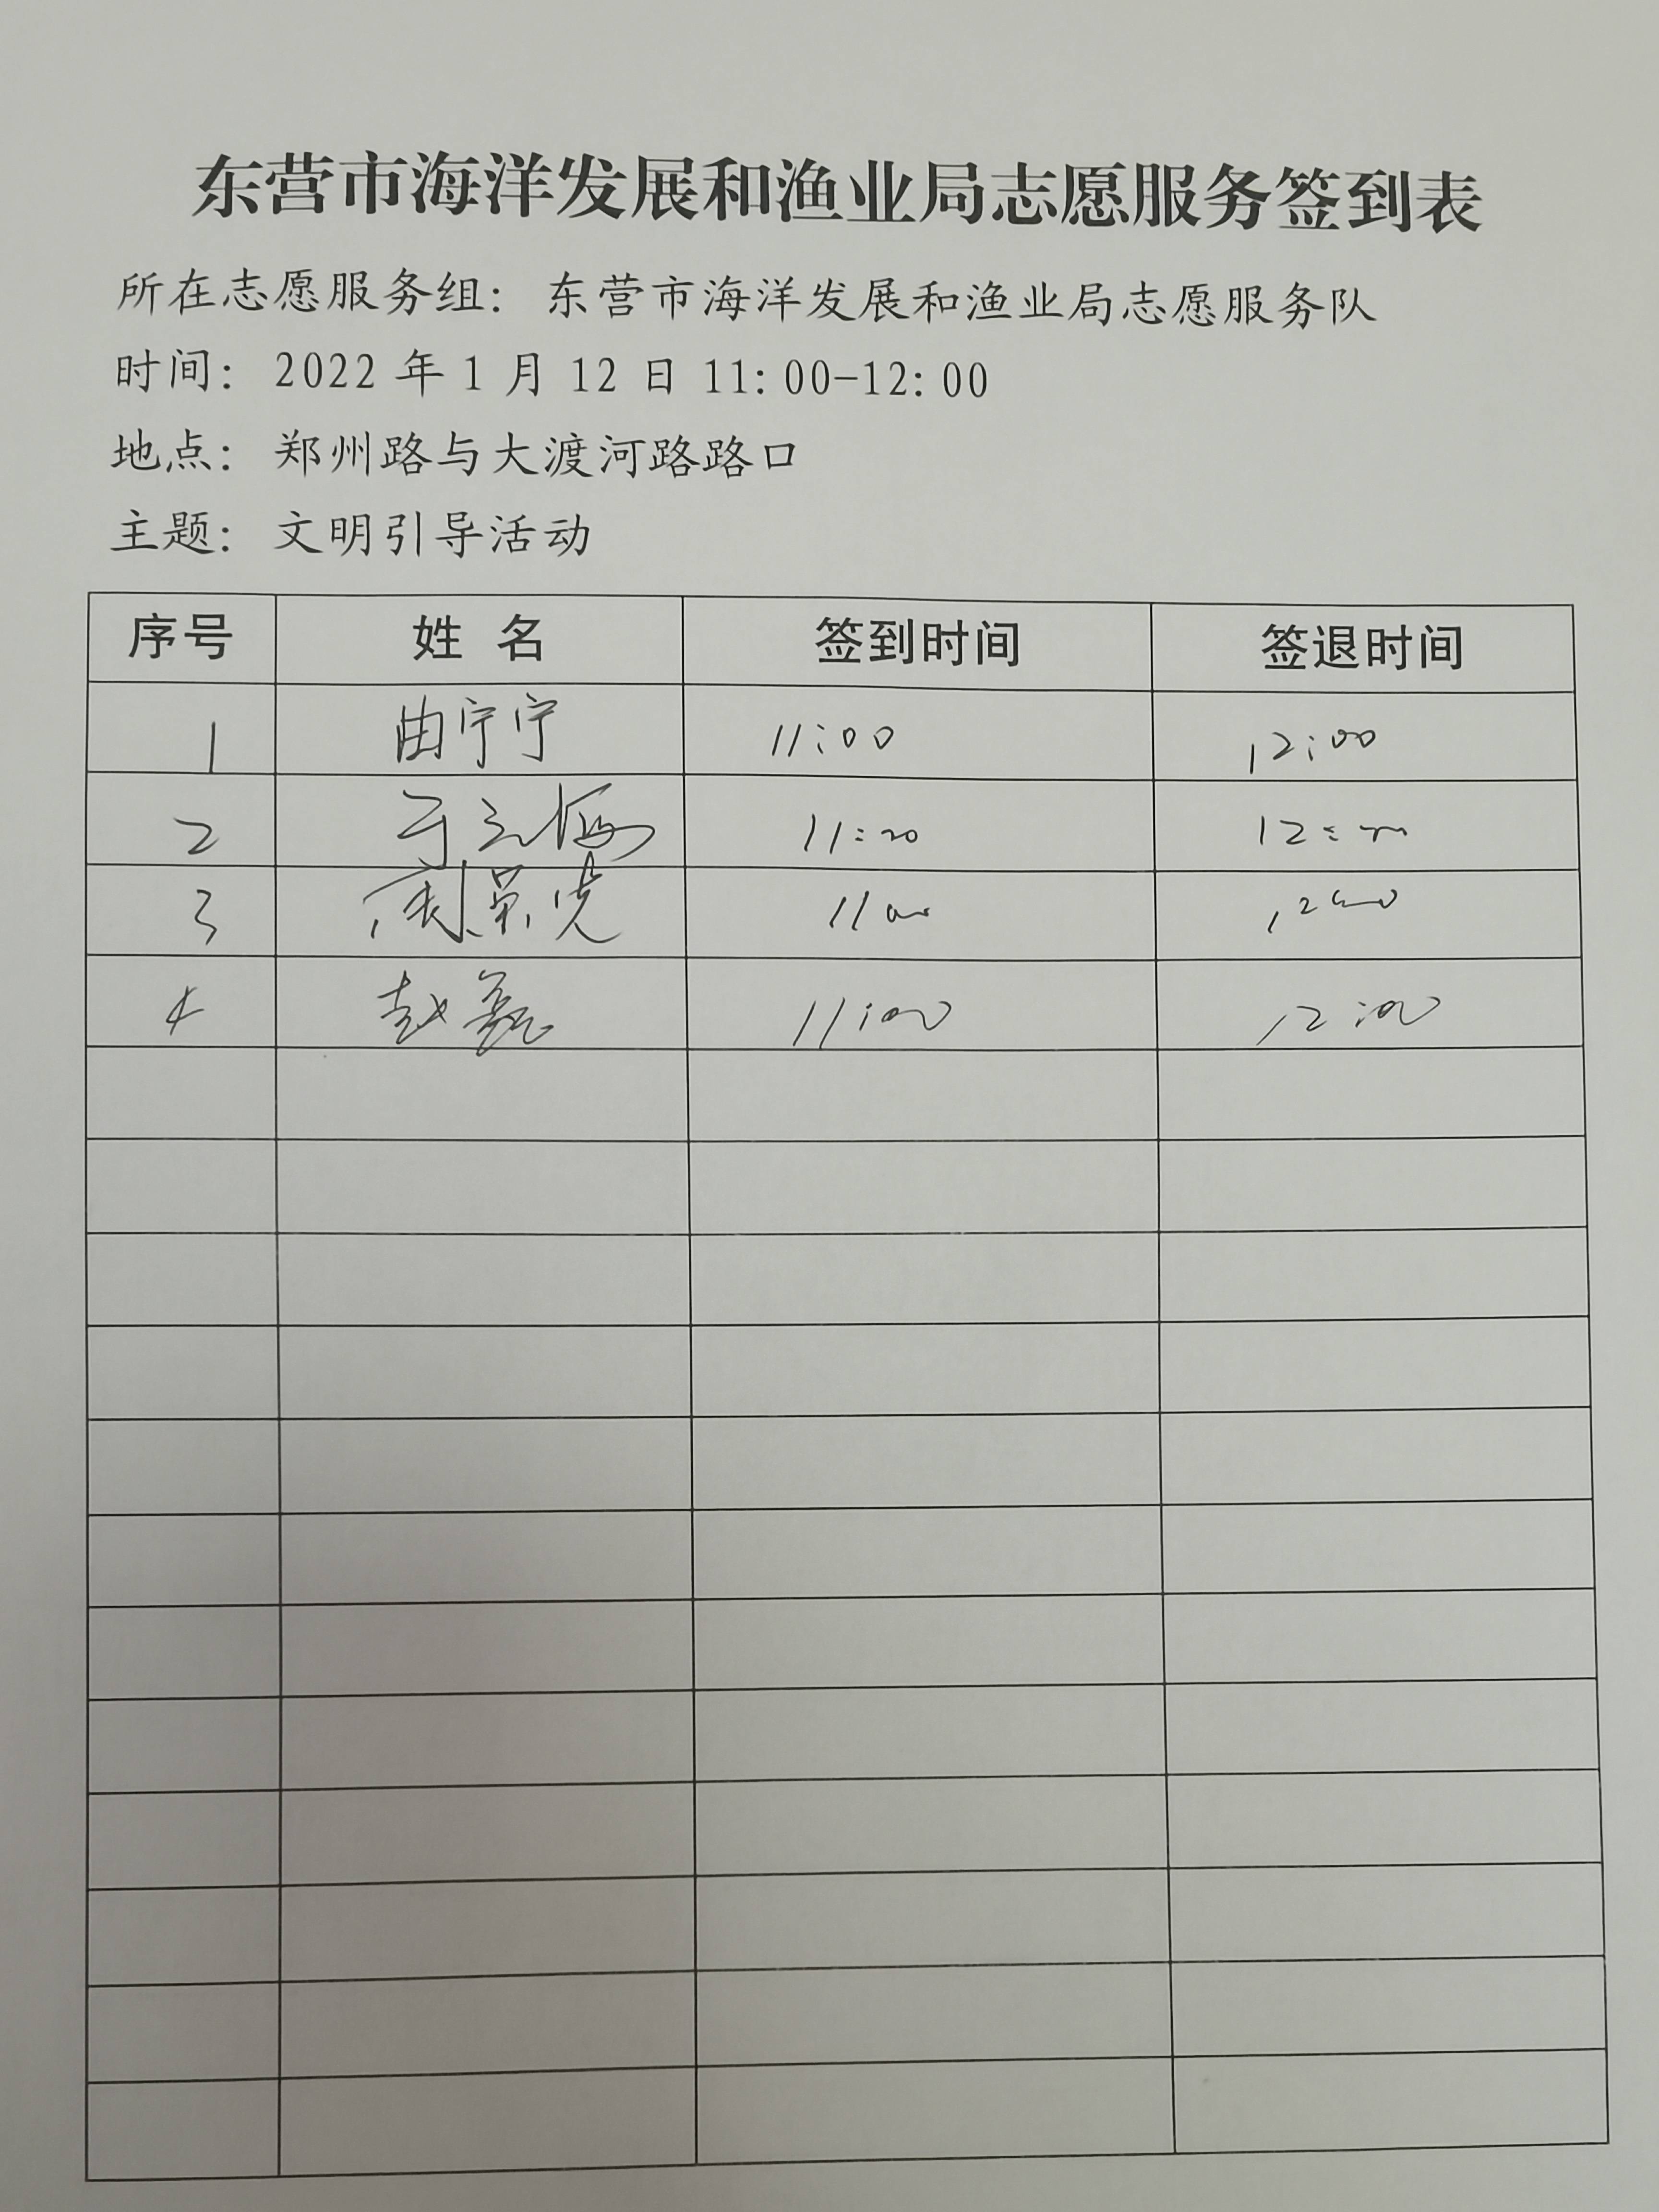 东营市海洋发展和渔业局志愿服务签到表
所在志愿服务组： 东营市海洋发展和渔业局志愿服务队
时间： 2022 年 1 月 12 日 11：00-12：00
地点： 郑州路与大渡河路路口
主题： 文明引导活动
序号 姓 名 签到时间 签退时间
1 曲宁宁 11:00 12:00
2 11:00 12:00
3 荣光 11:00 12:00
4 赵 11:00 12:00